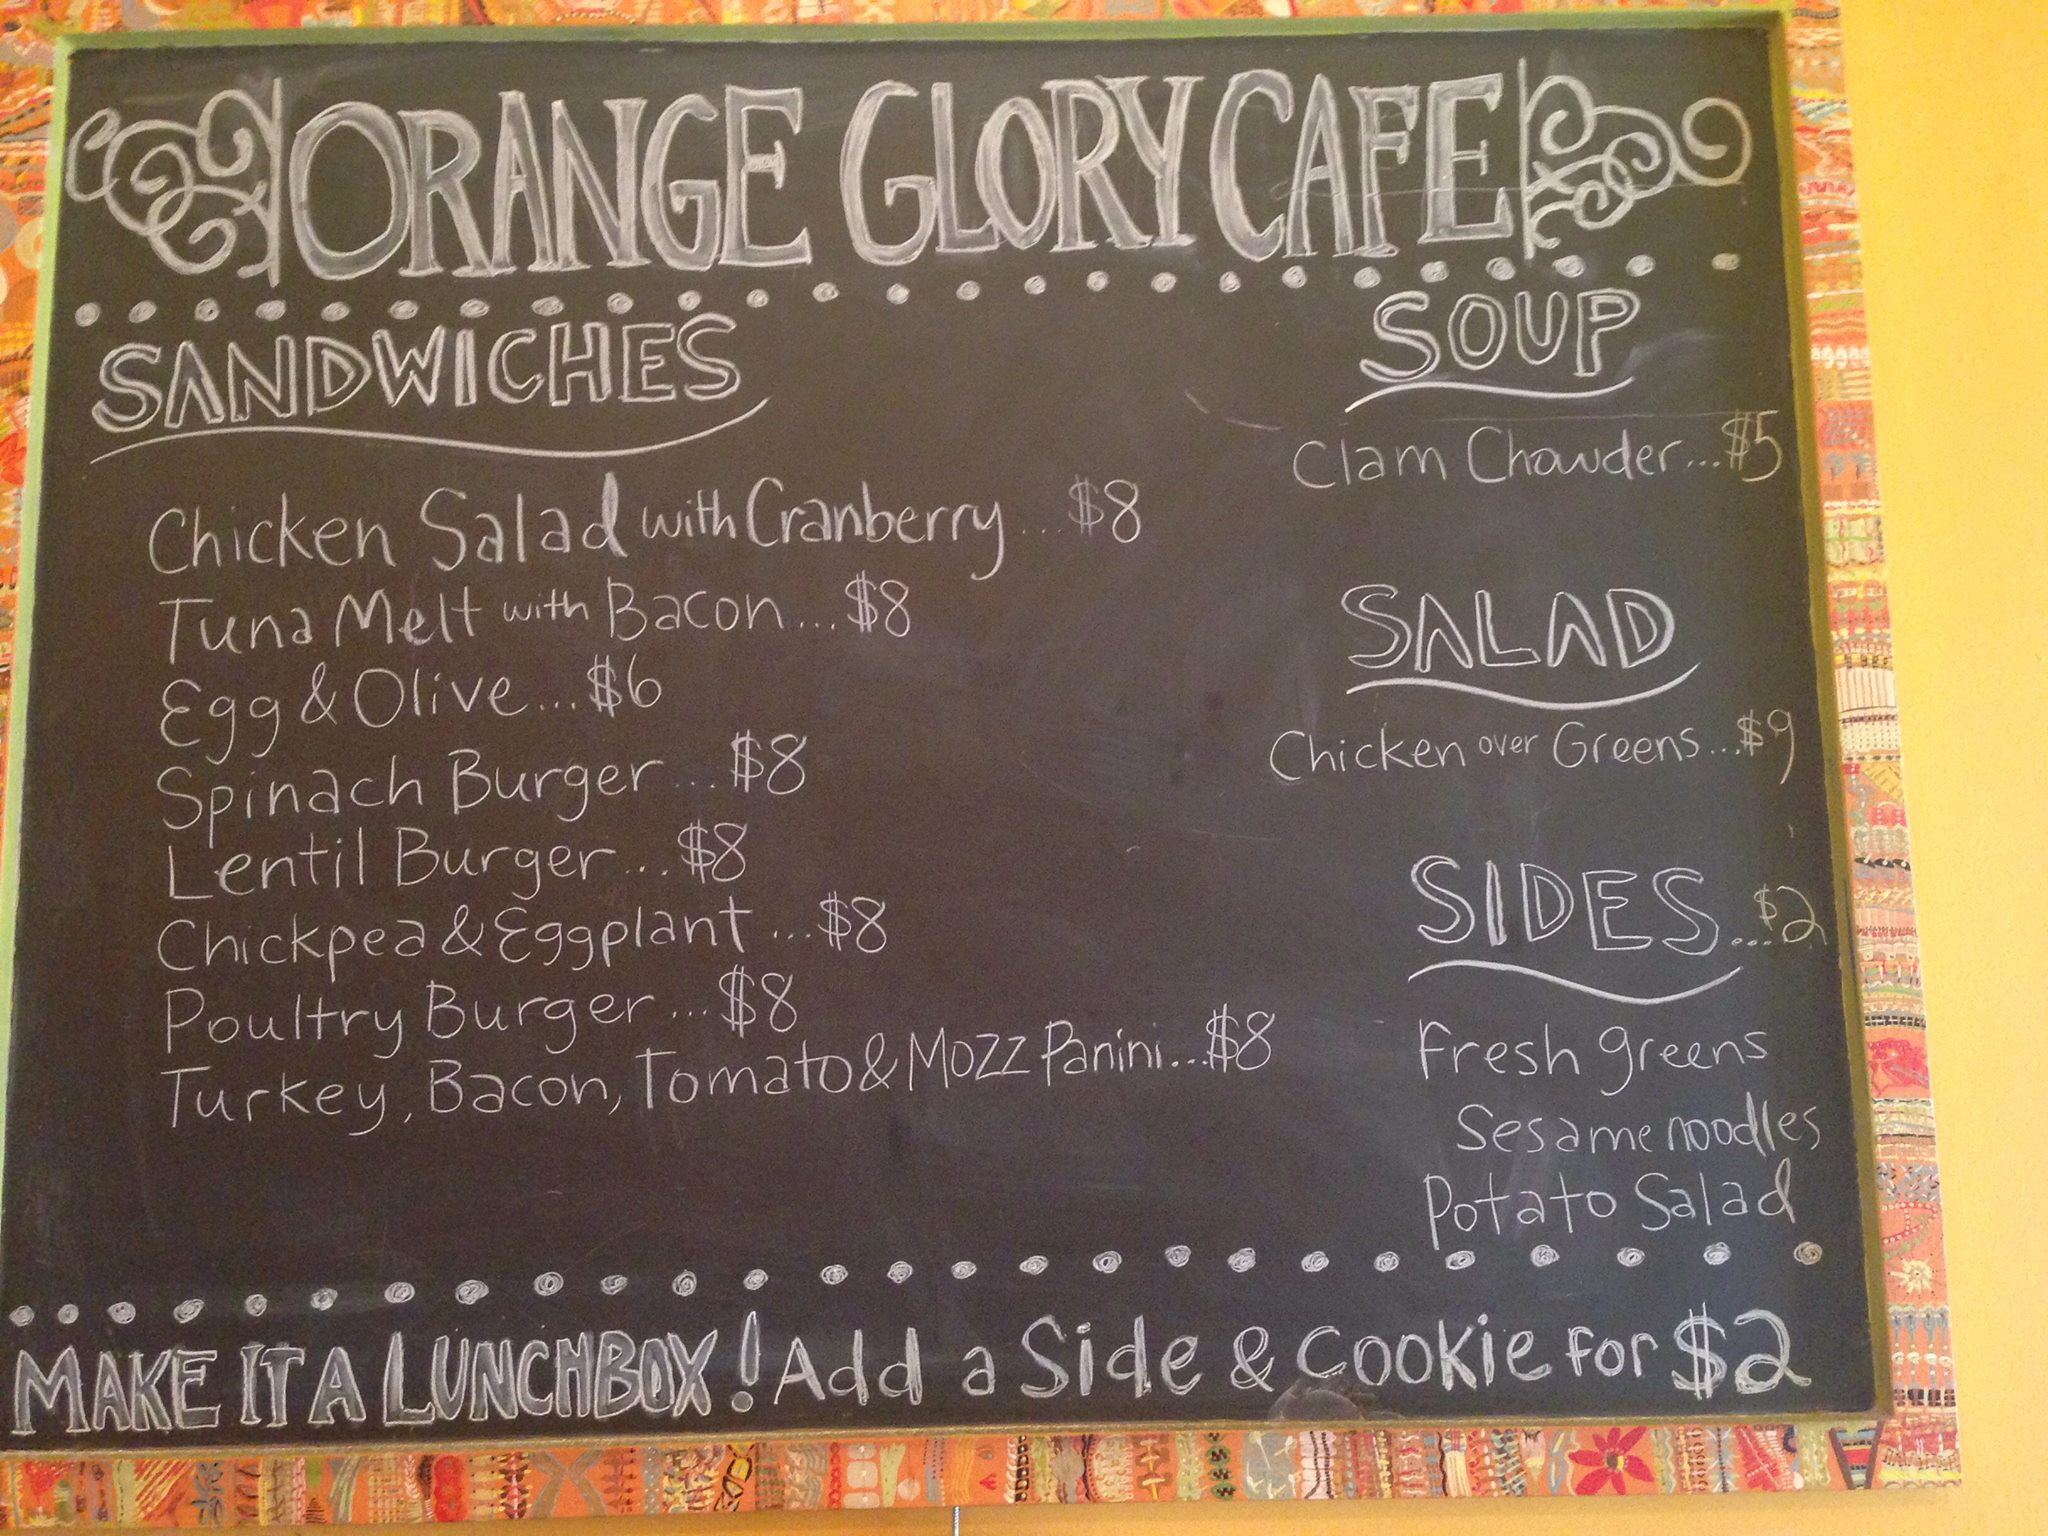 ORANGE GLORY CAFE
SANDWICHES
Chicken Salad with Cranberry...$8
Tuna Melt with Bacon...$8
Egg & Olive...$6
Spinach Burger...$8
Lentil Burger...$8
Chickpea & Eggplant...$8
Poultry Burger...$8
Turkey, Bacon, Tomato & Mozz Panini...$8
SOUP
Clam Chowder...$5
SALAD
Chicken over Greens...$9
SIDES...$2
Fresh greens
Sesame noodles
Potato Salad
MAKE IT A LUNCHBOX! Add a Side & Cookie for $2